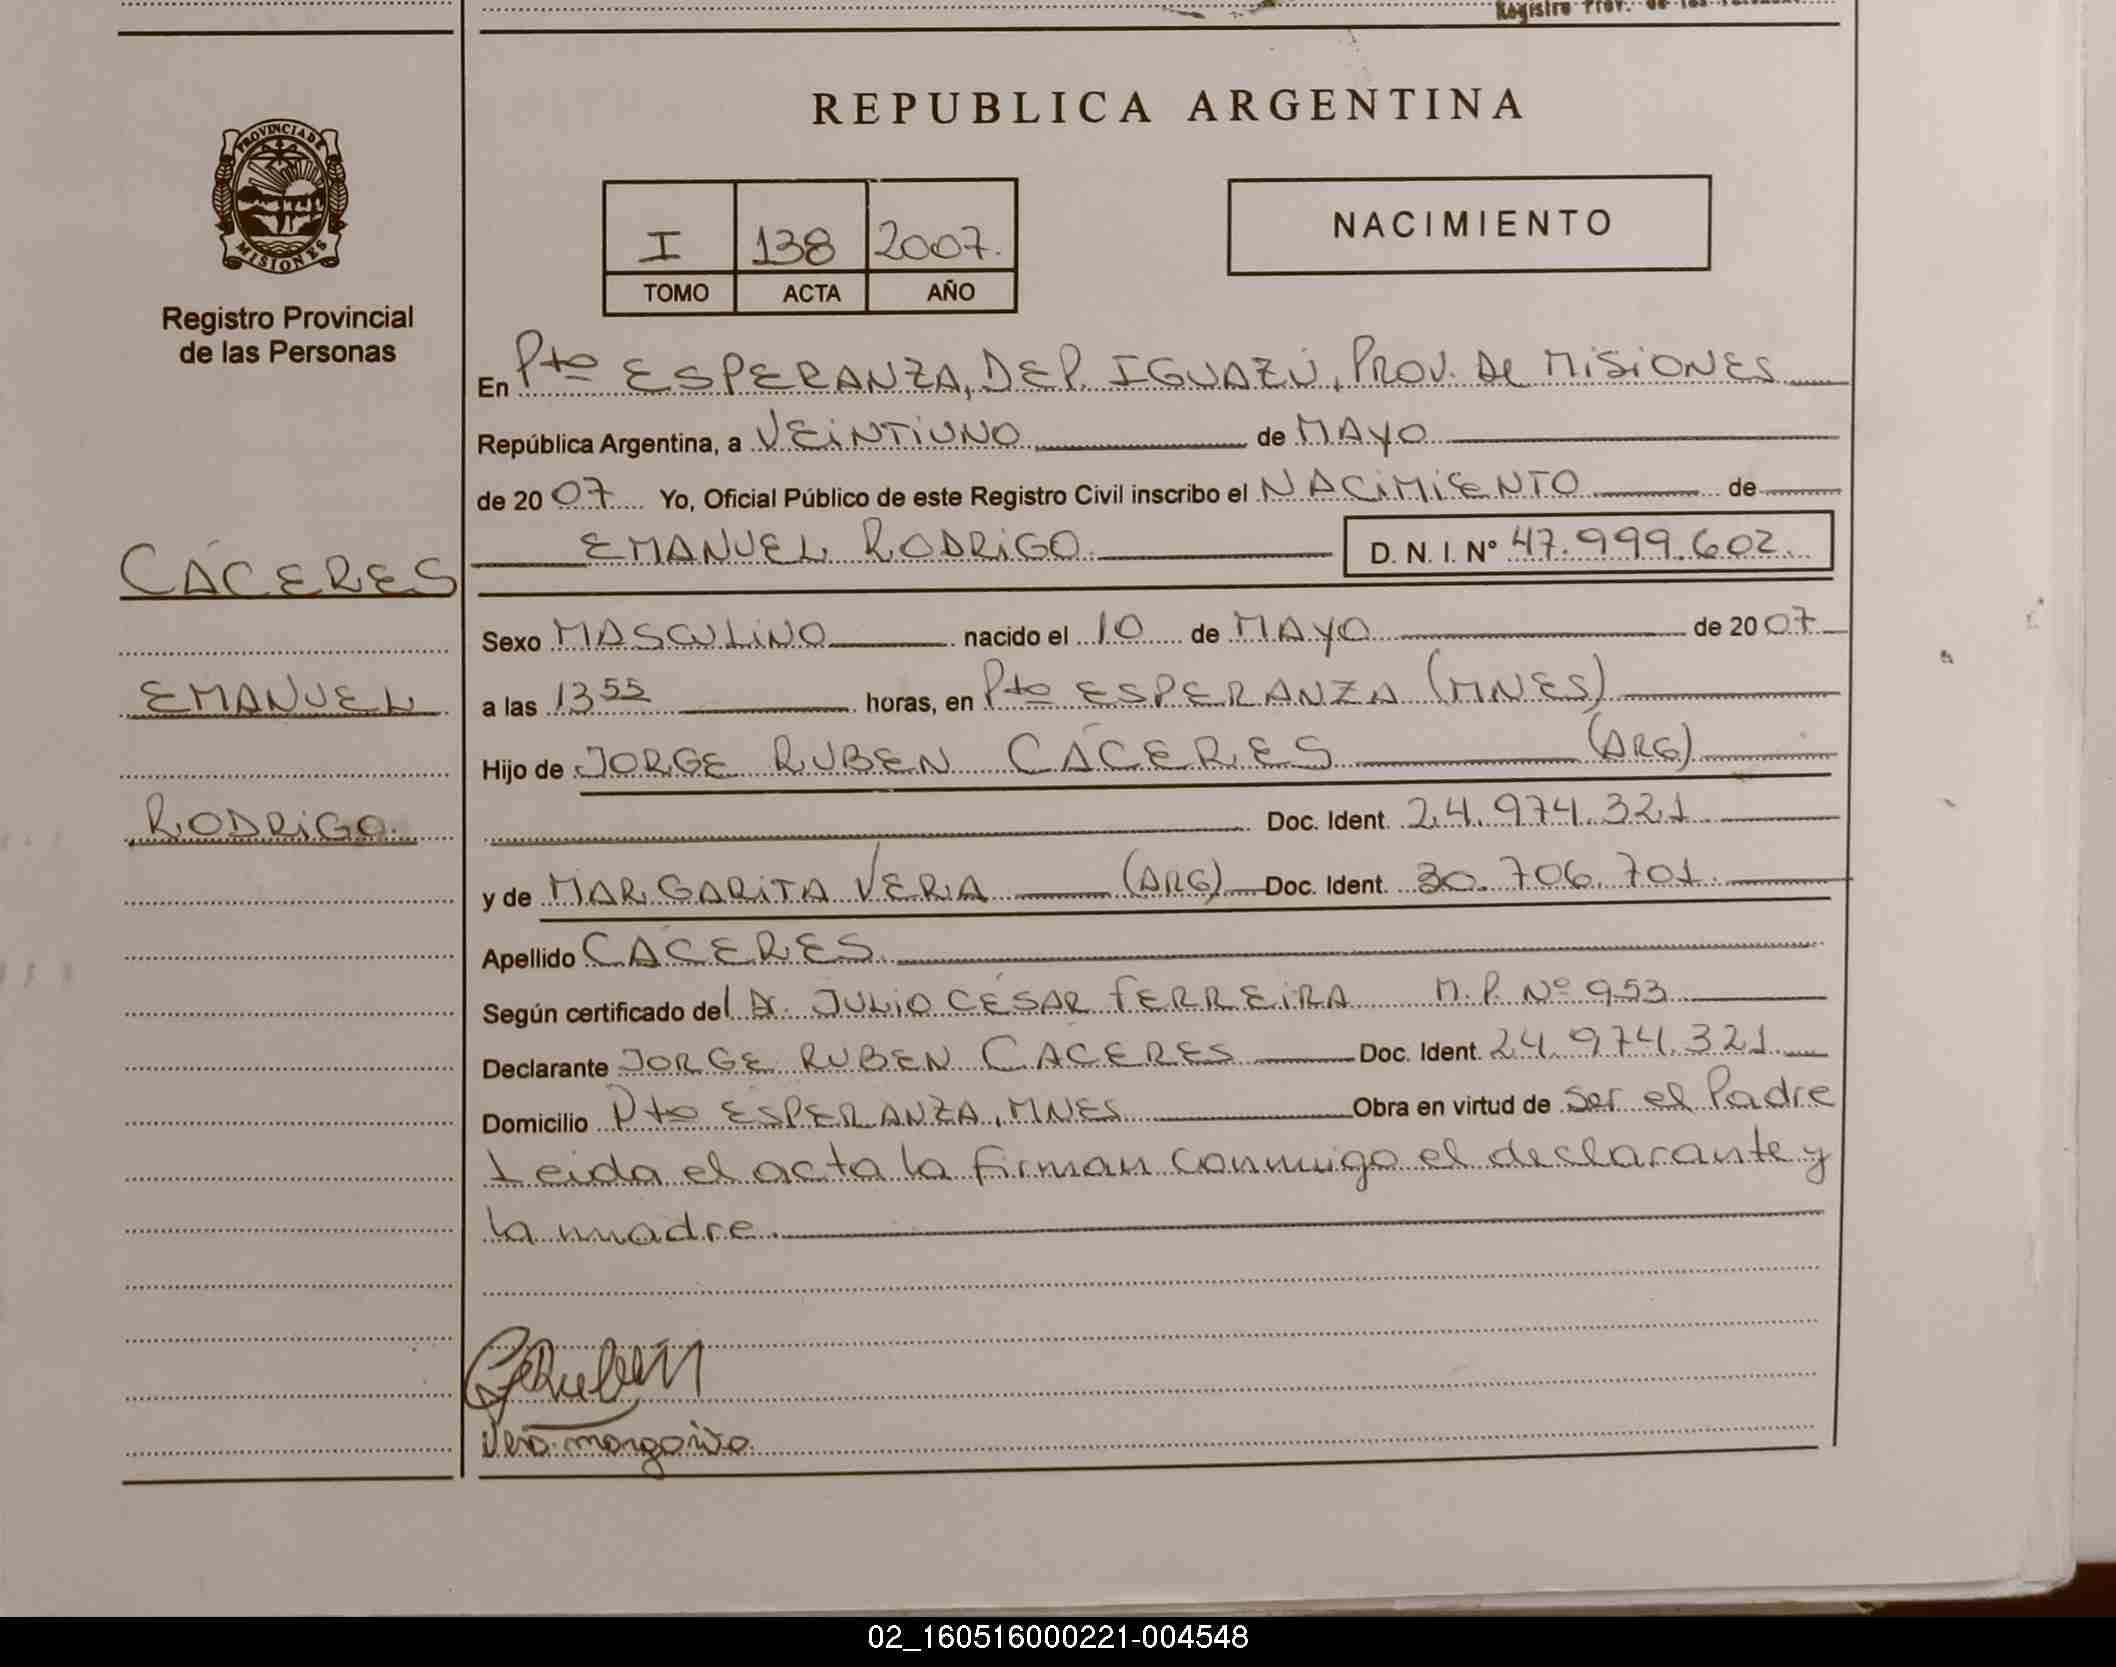 Registro Prov. de las
REPUBLICA ARGENTINA
PROVINCIA DE
MISIONES
Registro Provincial
de las Personas
I 138 2007.
TOMO ACTA AÑO
NACIMIENTO
En Pto ESPERANZA, DEP. IGUAZÚ, PROV. DE MISIONES
República Argentina, a VEINTIUNO de MAYO
de 20 07 Yo, Oficial Público de este Registro Civil inscribo el NACIMIENTO de
EMANUEL RODRIGO. D. N. I. N° 47.999.602.
CÁCERES
EMANUEL
RODRIGO.
Sexo MASCULINO nacido el 10 de MAYO de 20 07
a las 13 55 horas, en Pto ESPERANZA (MNES)
Hijo de JORGE RUBEN CÁCERES (ARG)
Doc. Ident. 24.974.321
y de MARGARITA VERA (ARG) Doc. Ident. 30.706.701.
Apellido CACERES.
Según certificado del Dr. JULIO CÉSAR FERREIRA M.P. Nº 953
Declarante JORGE RUBEN CÁCERES Doc. Ident. 24.974.321
Domicilio Pto ESPERANZA, MNES Obra en virtud de ser el Padre
Leida el acta la firman conmigo el declarante y
la madre.
Vera margarita
02_160516000221-004548